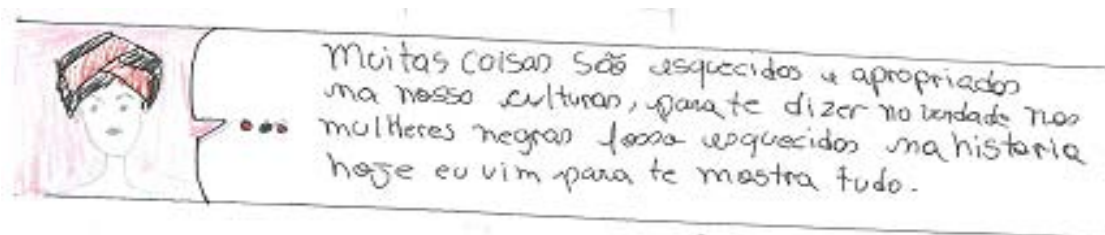 Muitas coisas são esquecidos e apropriados
na nosso culturas, para te dizer no verdade nos
mulheres negras fossa esquecidos na historia
hoje eu vim para te mostra tudo.